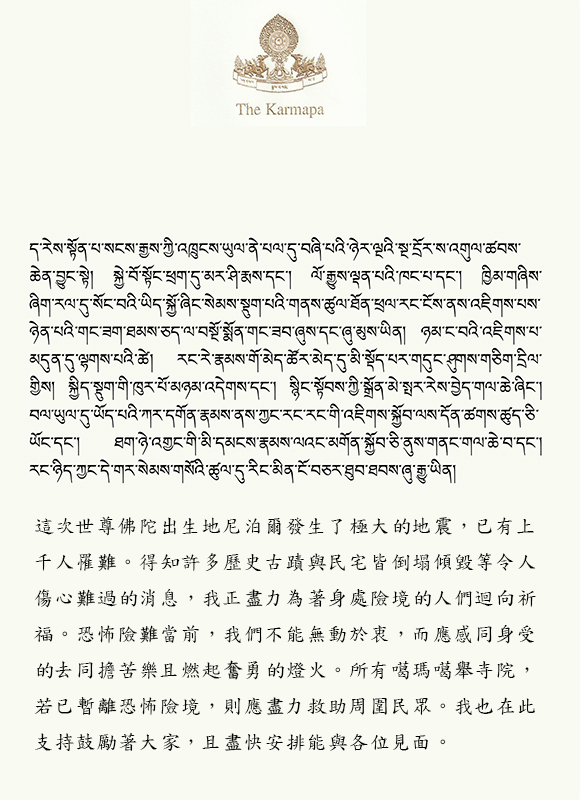 The Karmapa
ད་རེས་སྟོན་པ་སངས་རྒྱས་ཀྱི་འཁྲུངས་ཡུལ་ནེ་པལ་དུ་བཞི་པའི་ཉེར་ལྔའི་སྔ་དྲོར་ས་འགུལ་ཚབས་
ཆེན་བྱུང་སྟེ། སྐྱེ་བོ་སྟོང་ཕྲག་དུ་མར་ཤི་རྨས་དང་། ལོ་རྒྱུས་ལྡན་པའི་ཁང་པ་དང་། ཁྱིམ་གཞིས་
ཞིག་རལ་དུ་སོང་བའི་ཡིད་སྐྱོ་ཞིང་སེམས་སྡུག་པའི་གནས་ཚུལ་ཐོན་ཕྲལ་རང་ངོས་ནས་འཇིགས་པས་
ཉེན་པའི་གང་ཟག་ཐམས་ཅད་ལ་བསྔོ་སྨོན་གང་ཟབ་ཞུས་དང་ཞུ་མུས་ཡིན། ཉམ་ང་བའི་འཇིགས་པ་
མདུན་དུ་ལྷགས་པའི་ཚེ། རང་རེ་རྣམས་གོ་མེད་ཚོར་མེད་དུ་མི་སྡོད་པར་གདུང་ཤུགས་གཅིག་དྲིལ་
གྱིས། སྐྱིད་སྡུག་གི་ཁུར་པོ་མཉམ་འདེགས་དང་། སྙིང་སྟོབས་ཀྱི་སྒྲོན་མེ་སྤར་རེས་བྱེད་གལ་ཆེ་ཞིང་།
བལ་ཡུལ་དུ་ཡོད་པའི་ཀར་དགོན་རྣམས་ནས་ཀྱང་རང་རང་གི་འཇིགས་སྐྱོབ་ལས་དོན་ཚགས་ཚུད་ཅི་
ཡོང་དང་། ཐག་ཉེ་འགྱང་གི་མི་དམངས་རྣམས་ལའང་མགོན་སྐྱོབ་ཅི་ནུས་གནང་གལ་ཆེ་བ་དང་།
རང་ཉིད་ཀྱང་དེ་གར་སེམས་གསོའི་ཚུལ་དུ་རིང་མིན་ངོ་བཅར་ཐུབ་ཐབས་ཞུ་རྒྱུ་ཡིན།
這次世尊佛陀出生地尼泊爾發生了極大的地震，已有上
千人罹難。得知許多歷史古蹟與民宅皆倒塌傾毀等令人
傷心難過的消息，我正盡力為著身處險境的人們迴向祈
福。恐怖險難當前，我們不能無動於衷，而應感同身受
的去同擔苦樂且燃起奮勇的燈火。所有噶瑪噶舉寺院，
若已暫離恐怖險境，則應盡力救助周圍民眾。我也在此
支持鼓勵著大家，且盡快安排能與各位見面。